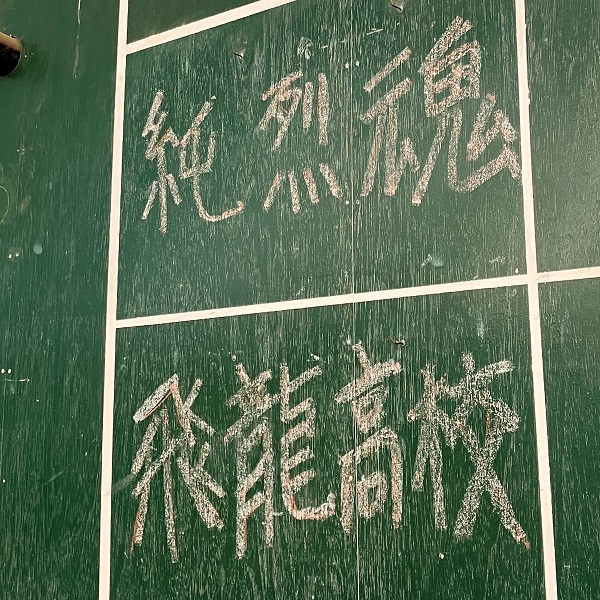 純烈魂
飛龍高校